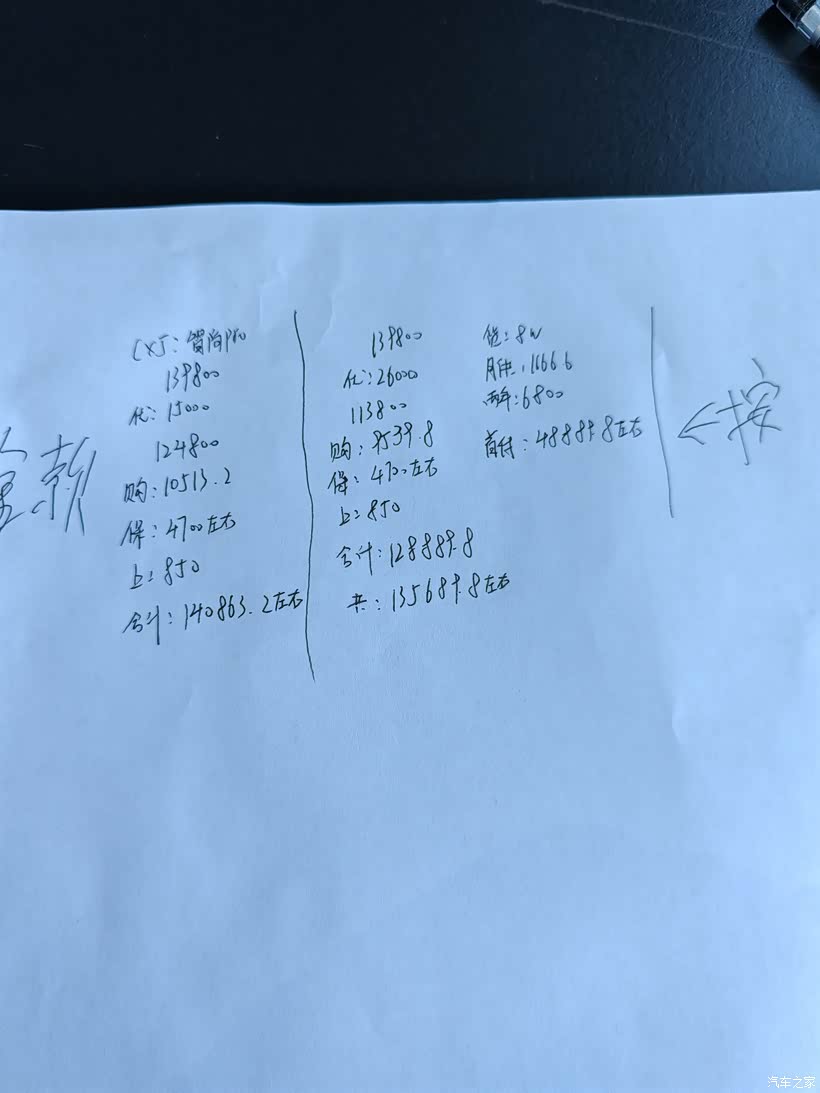 全款
CX5: 智尚Pro
139800
优: 15000
124800
购: 10513.2
保: 4700左右
上: 850
合计: 140863.2左右
139800
优: 26000
113800
购: 9539.8
保: 4700左右
上: 850
合计: 128889.8
共: 135689.8左右
贷: 8w
月供: 1666.6
两年: 6800
首付: 48889.8左右
←按
汽车之家